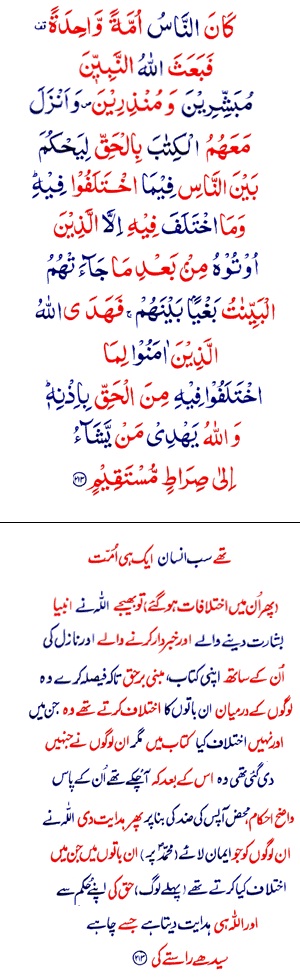 كَانَ النَّاسُ اُمَّةً وَّاحِدَةً قف
فَبَعَثَ اللّٰهُ النَّبِيّٖنَ
مُبَشِّرِيْنَ وَمُنْذِرِيْنَ ص وَاَنْزَلَ
مَعَهُمُ الْكِتٰبَ بِالْحَقِّ لِيَحْكُمَ
بَيْنَ النَّاسِ فِيْمَا اخْتَلَفُوْا فِيْهِ ؕ
وَمَا اخْتَلَفَ فِيْهِ اِلَّا الَّذِيْنَ
اُوْتُوْهُ مِنْۢ بَعْدِ مَا جَآءَتْهُمُ
الْبَيِّنٰتُ بَغْيًۢا بَيْنَهُمْ ۚ فَهَدَى اللّٰهُ
الَّذِيْنَ اٰمَنُوْا لِمَا
اخْتَلَفُوْا فِيْهِ مِنَ الْحَقِّ بِاِذْنِهٖ ؕ
وَاللّٰهُ يَهْدِيْ مَنْ يَّشَآءُ
اِلٰى صِرَاطٍ مُّسْتَقِيْمٍ ﴿۲۱۳﴾
تھے سب انسان ایک ہی اُمّت
(پھر اُن میں اختلافات ہو گئے) تو بھیجے اللہ نے انبیا
بشارت دینے والے اور خبردار کرنے والے اور نازل کی
اُن کے ساتھ اپنی کتاب، مبنی برحق تاکہ فیصلہ کرے وہ
لوگوں کے درمیان ان باتوں کا اختلاف کرتے تھے وہ جن میں
اور نہیں اختلاف کیا کتاب میں مگر ان لوگوں نے جنہیں
دی گئی تھی وہ اس کے بعد کہ آچکے تھے اُن کے پاس
واضح احکام، محض آپس کی ضد کی بنا پر پھر ہدایت دی اللہ نے
ان لوگوں کو جو ایمان لائے (محمدؐ پر) ان باتوں میں جن میں
اختلاف کیا کرتے تھے (پہلے لوگ) حق کی اپنے حُکم سے
اور اللہ ہی ہدایت دیتا ہے جسے چاہے
سیدھے راستے کی ﴿۲۱۳﴾